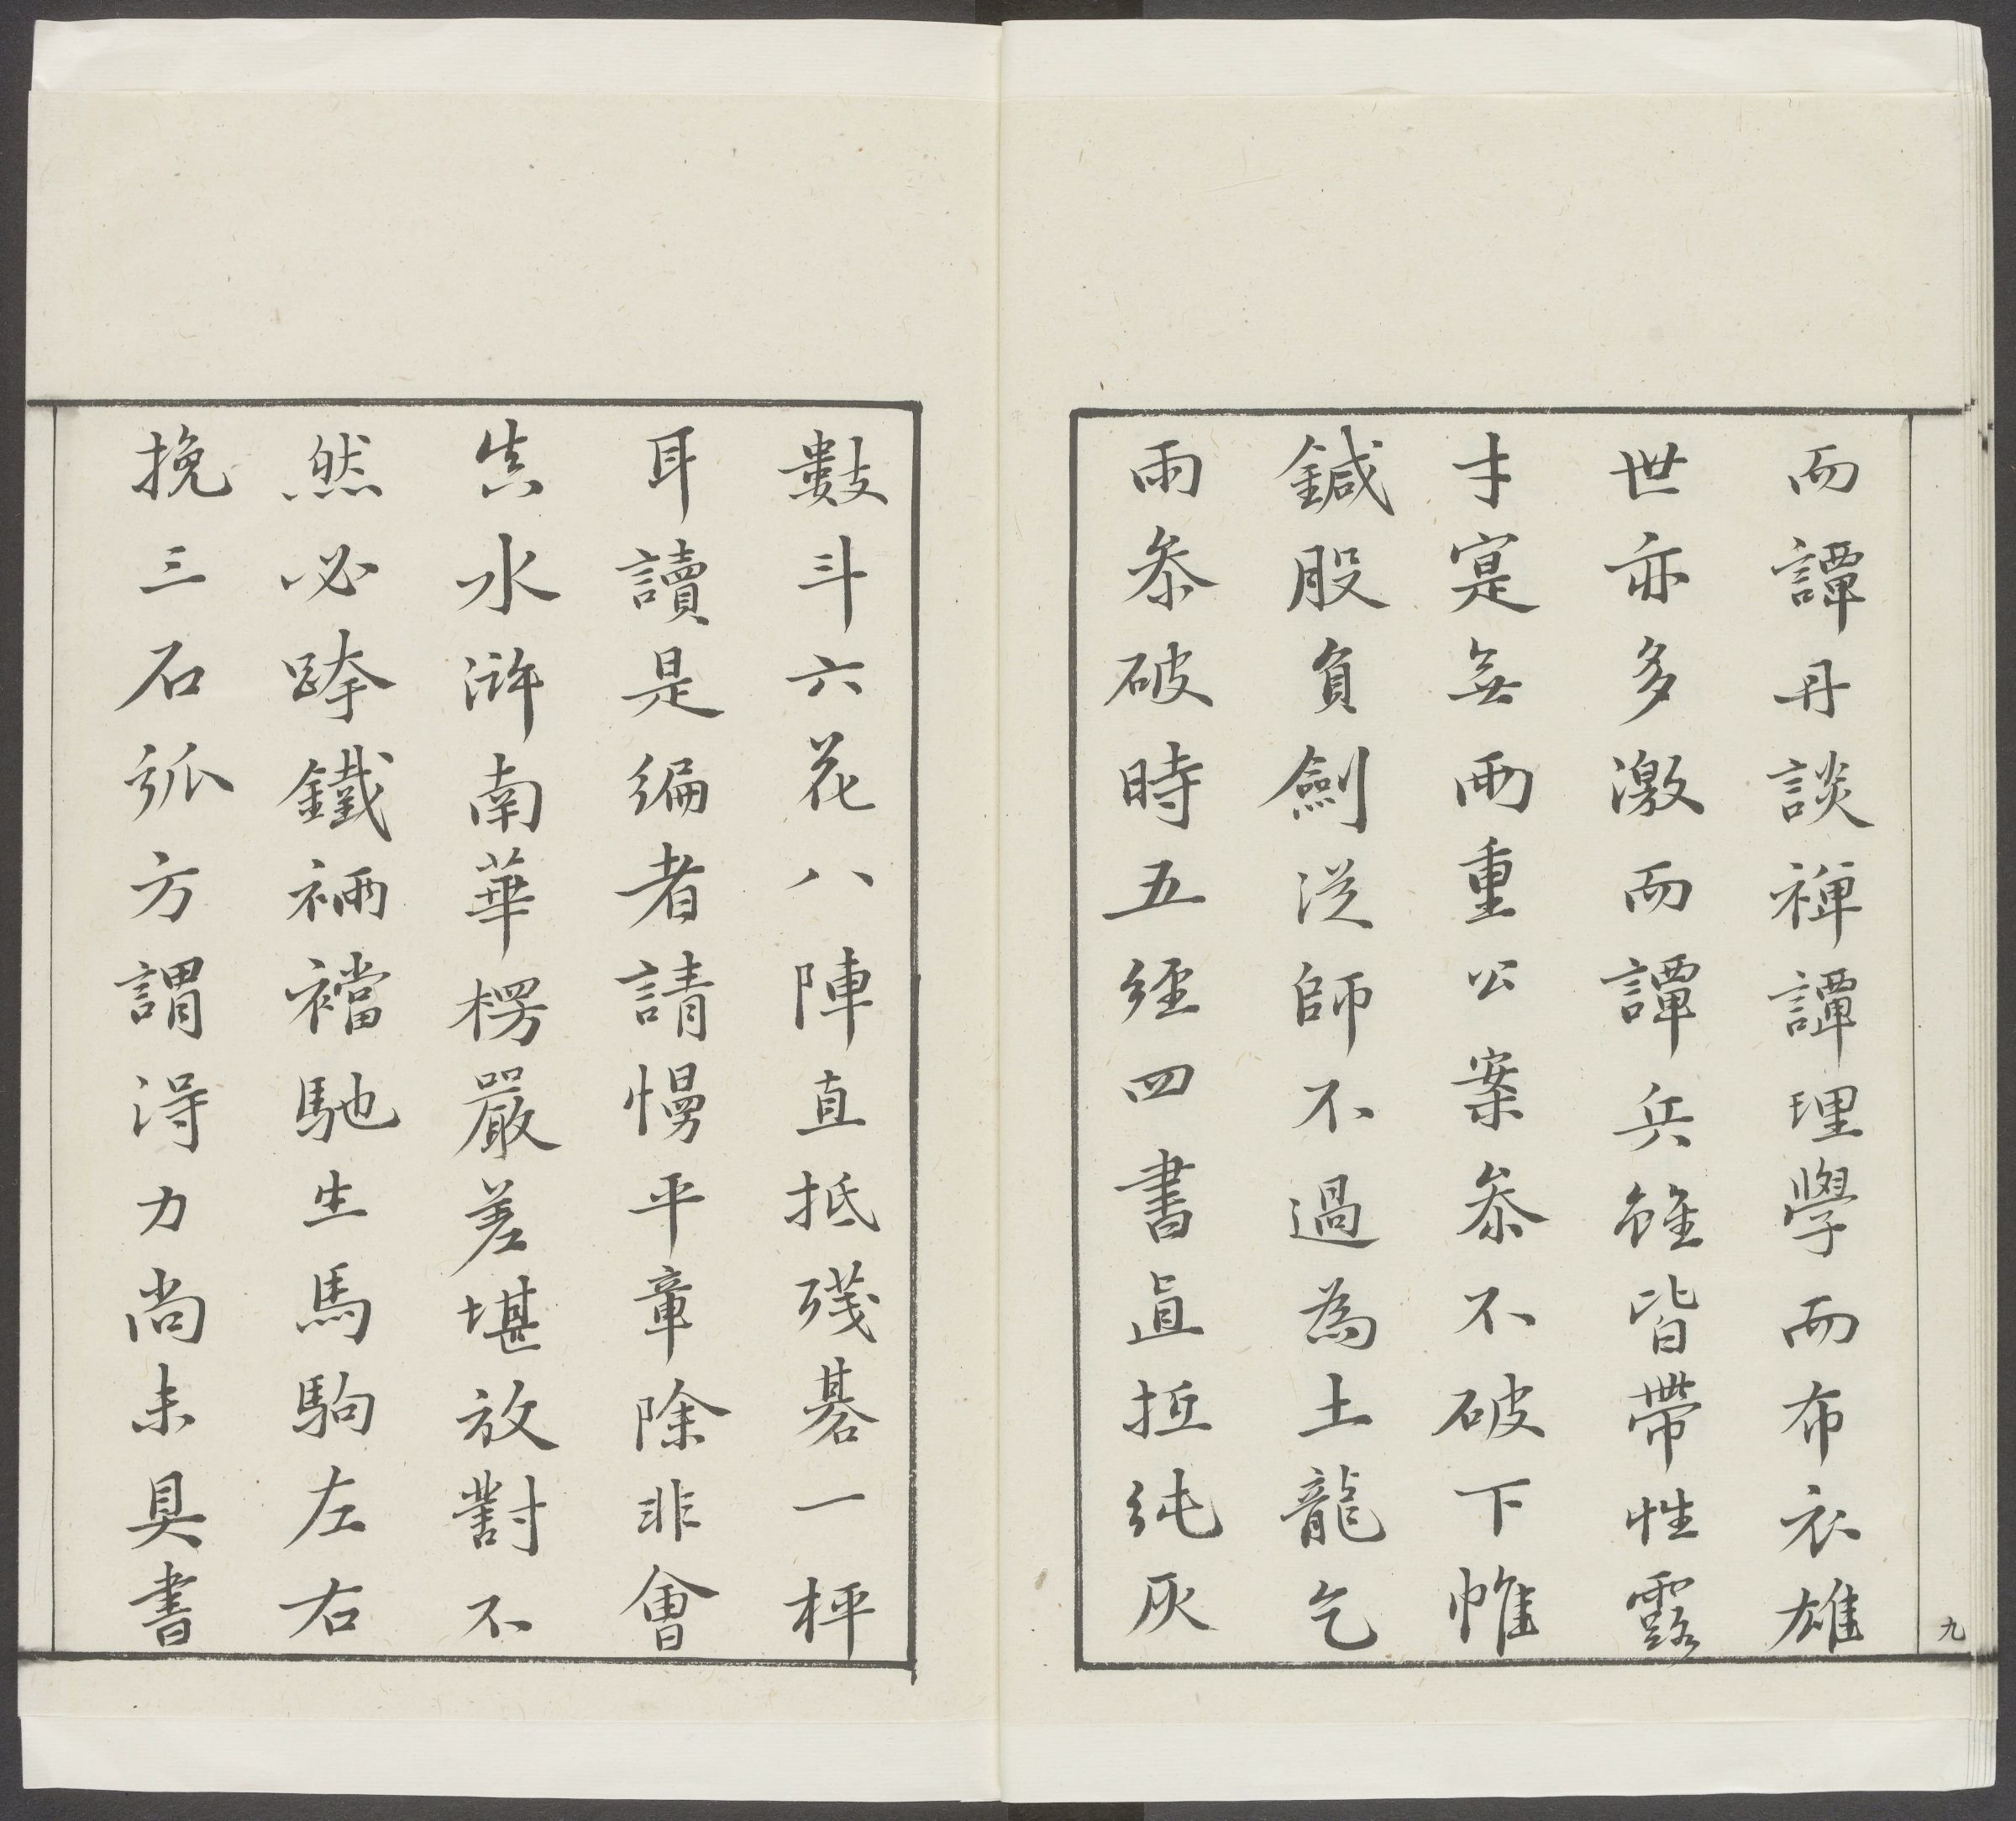 而譚丹談禪譚理學而布衣雄
世亦多激而譚兵雖皆帶性露
才寔無兩重公案叅不破下帷
鍼股負劍從師不過為土龍乞
雨叅破時五經四書直抵純灰
數斗六花八陣直抵殘碁一枰
耳讀是編者請慢平章除非會
真水滸南華楞嚴差堪放對不
然必跨鐵裲襠馳生馬駒左右
挽三石弧方謂得力尚未具書
九